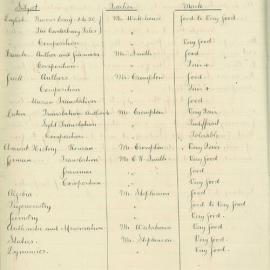 Subject Teacher Marks
English Mr. Waterhouse Good to Very Good
The Canterbury Tales "
Composition " Very Good.
French Authors and Grammar Mr. Smith Good.
Composition " Fair +
Greek Authors Mr. Crompton Good.
Composition " Fair +
Unseen Translation " Good.
Latin Translation Authors Mr. Crompton Very Fair
Sight Translation " Indifferent
Composition " Tolerable
Ancient History Roman Mr. Crompton Very Fair
German Translation Mr. Smith Very Good.
Grammar " Good.
Composition " Very Good.
Algebra Mr. Stephenson Good.
Trigonometry " Good to Very Good.
Geometry " Very Good.
Arithmetic and Mensuration Mr. Waterhouse Very Good.
Statics Mr. Stephenson Very Good.
Dynamics " Very Good.